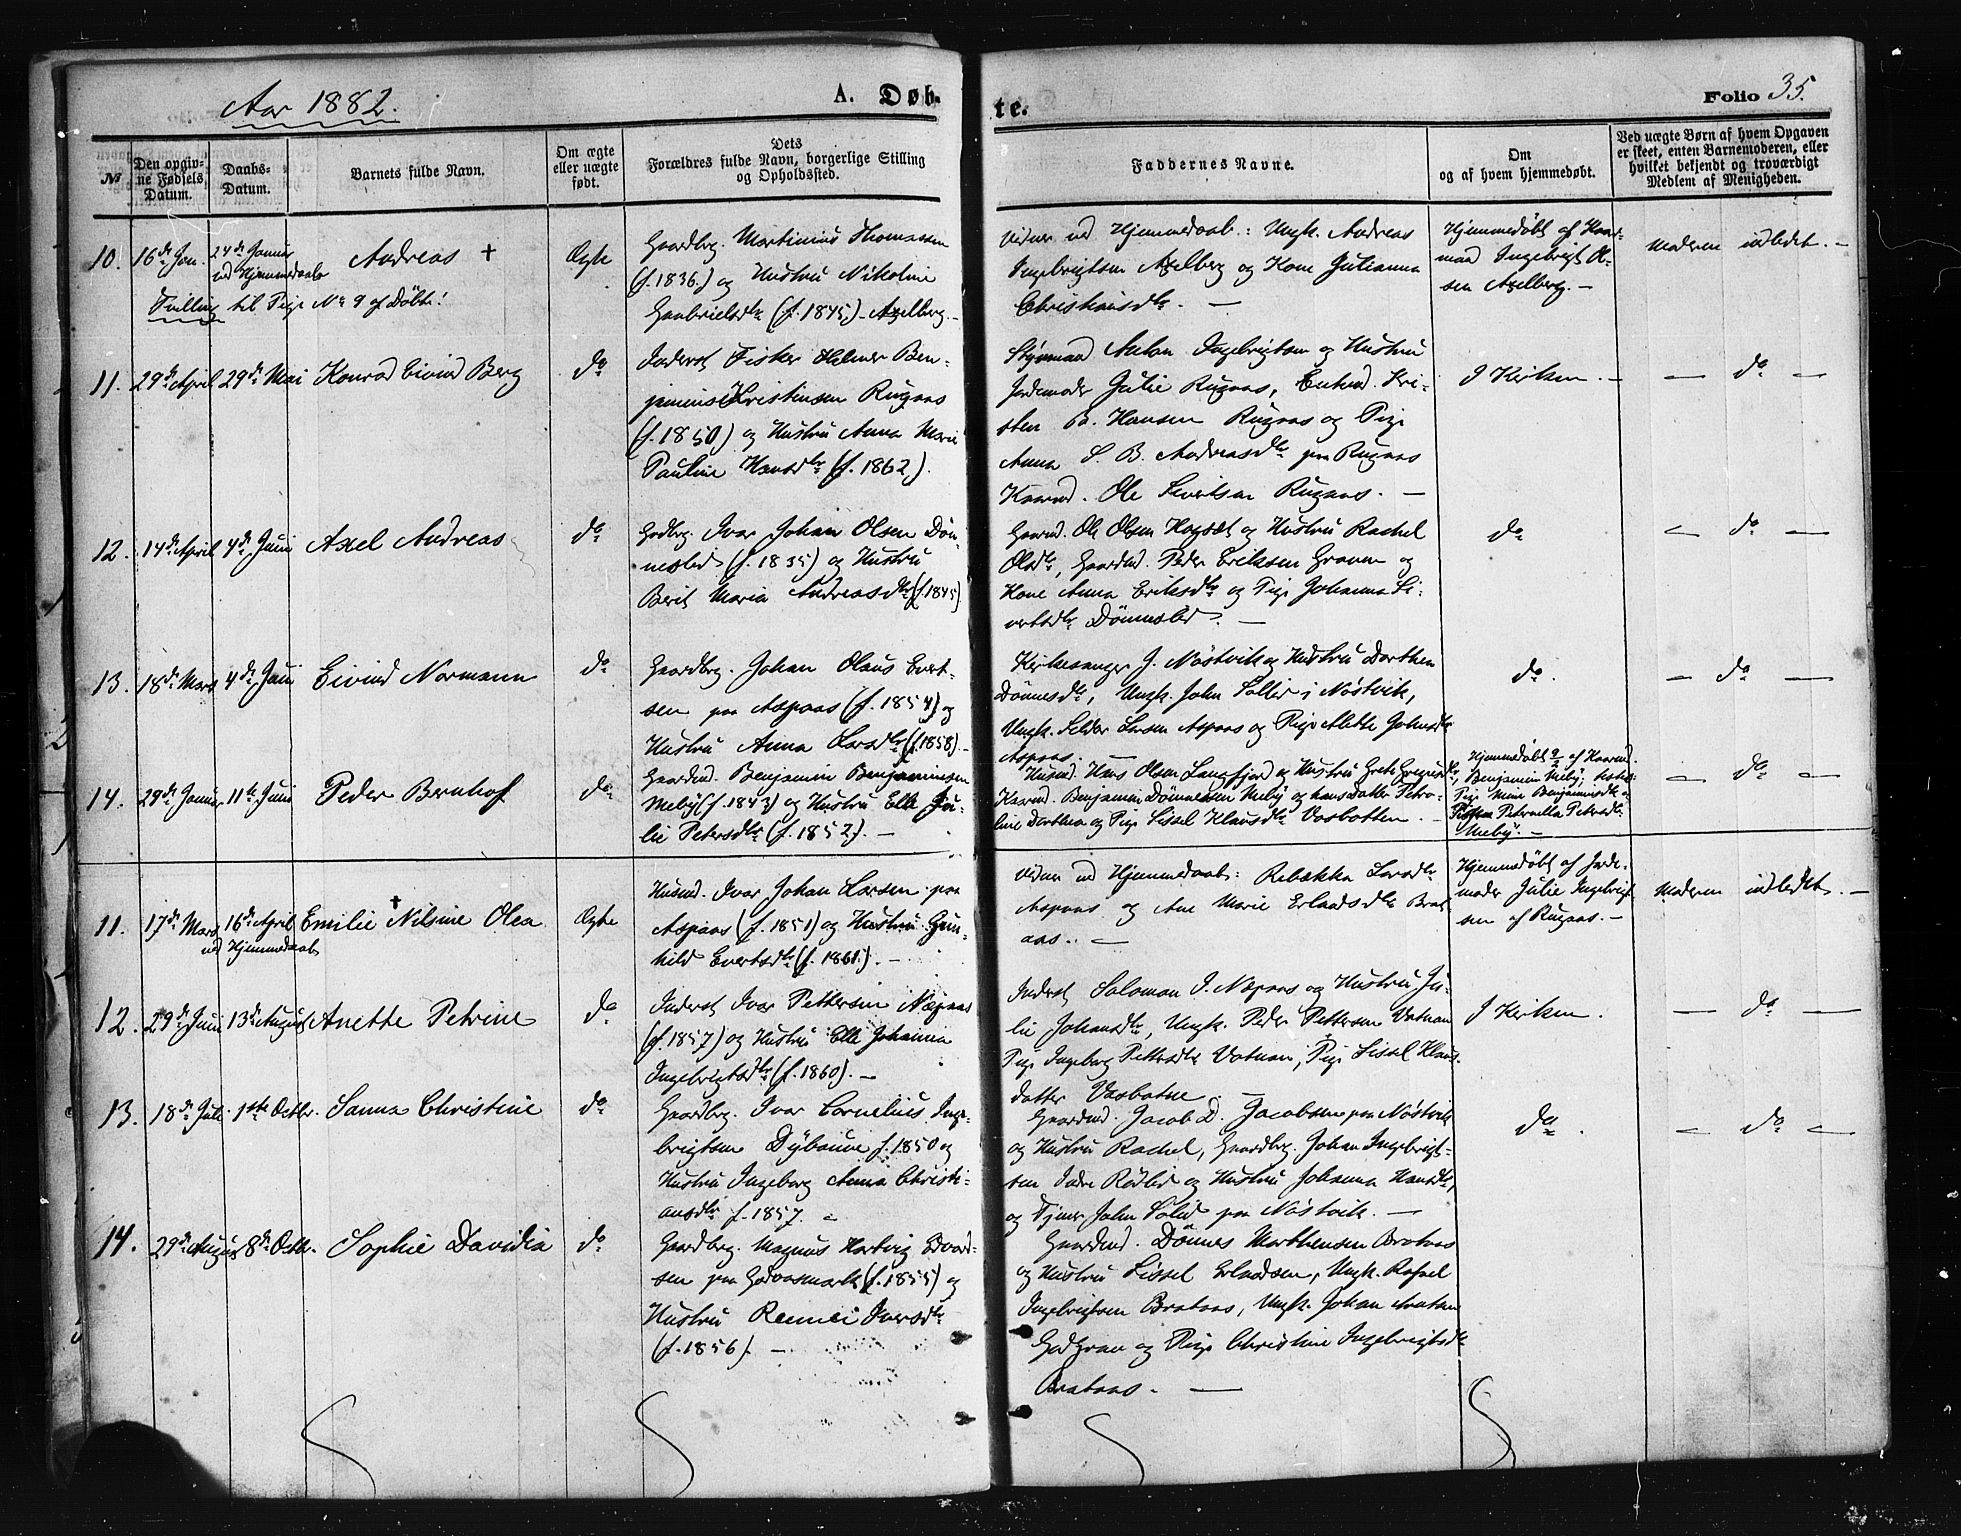 Aar 1882.
A. Døb-
te.
Folio 35.
№
Den opgiv-
ne Fødsels
Datum.
Daabs-
Datum.
Barnets fulde Navn.
Om ægte
eller uægte
født.
Dets
Forældres fulde Navn, borgerlige Stilling
og Opholdssted.
Faddernes Navne.
Om
og af hvem hjemmedøbt.
Ved uægte Børn af hvem Opgaven
er skeet, enten Barnemoderen, eller
hvilket bekjendt og troværdigt
Medlem af Menigheden.
10. 16de Jan. 24de Januar
ved Hjemmedaab
Tvilling til Pige No 9 af Døbte!
Andreas +
Ægte
Gaardbrg. Martinius Thomassen
(f. 1836.) og Hustru Nikoline
Gabrielsdtr (f. 1845.) Axelberg.
Vidner ved Hjemmedaab: Ungk. Andreas
Ingebrigtsen Axelberg og Kone Julianna
Christiansdtr. —
Hjemmedøbt af Kaar-
mand Ingebrigt Ol-
sen Axelberg. —
Moderen indledet. —
11. 29de April 29de Mai Konrad Eivind Berg
do
Inderst Fisker Helmer Ben-
jamins Kristensen Rugaas
(f. 1850) og Hustru Anna Marie
Pauline Hansdtr (f. 1862).
Styrmand Anton Ingebrigtsen og Hustru
Jordemoder Julie Rugaas, Enkmd. Kri-
sten B. Hansen Rugaas og Pige
Anna S. B. Andreasdtr paa Rugaas
Kaarmd. Ole Sivertsen Rugaas. —
I Kirken. —
— do —
12. 14de April 4de Juni Axel Andreas
do
Gdbrg. Ivar Johan Olsen Døn-
neslid (f. 1835) og Hustru
Berit Maria Andreasdtr (f. 1845)
Gaardmd. Ole Olsen Hogset og Hustru Rachel
Olsdtr, Gaardmd. Peder Eriksen Graven og
Kone Anna Eriksdtr og Pige Johanna Si-
vertsdtr Dønneslid. —
do
— do —
13. 18de Mars 4de Juni Eivind Normann
do
Gaardbrg. Johan Olaus Evert-
sen paa Aspaas (f. 1854) og
Hustru Anna Larsdtr (f. 1858). —
Kirkesanger J. Nøstvik og Hustru Dorthea
Dønnesdtr, Ungk. John Sollid i Nøstvik,
Ungk. Peder Larsen Aspaas og Pige Alette Johnsdtr
Aspaas. —
do.
— do —
14. 29de Januar 11te Juni Peder Bernhof
do
Gaardmd. Benjamin Benjaminsen
Meby (f. 1843) og Hustru Elle Ju-
lie Petersdtr (f. 1852). —
Husmd. Hans Olsen Langfjord og Hustru Grete Gregusdtr,
Kaarmd. Benjamin Dønnesen Meby og hans Datter Petro-
line Dorthea og Pige Sissel Klausdtr Vasbotten. —
Hjemmedøbt af Kaarmd.
Benjamin Meby,
Pige Mine Benjaminsdtr og
Peternella Petersdtr
Meby. —
— do —
11. 17de Mars 16de April Emilie Nilsine Olea +
ved Hjemmedaab
Ægte
Husmd. Ivar Johan Larsen paa
Aspaas (f. 1851) og Hustru Gun-
hild Evertsdtr (f. 1861.). —
Vidner ved Hjemmedaab: Rebækka Larsdtr
Aspaas og Ane Marie Erlandsdtr Brat-
aas. —
Hjemmedøbt af Jorde-
moder Julie Ingebrigt-
sen af Rugaas. —
Moderen indledet. —
12. 29de Juni 13de August Anette Petrine
do
Inderst Ivar Pettersen Næpaas
(f. 1857) og Hustru Elle Johanna
Ingebrigtsdtr (f. 1860). —
Inderst Salomon J. Næpaas og Hustru Ju-
lie Johansdtr, Ungk. Peder Pettersen Vatnan
Pige Ingeborg Pettersdtr Vatnan, Pige Sissel Klaus-
datter Vasbotne. —
I Kirken.
— do —
13. 18de Juli. 1ste Octbr. Sanna Christine
do
Gaardbrg. Ivar Cornelius Inge-
brigtsen Dybaune f. 1850 og
Hustru Ingeborg Anna Christi-
ansdtr f. 1857. —
Gaardmd. Jacob D. Jacobsen paa Nøstvik
og Hustru Rachel, Gaardbrg. Johan Ingebrigt-
sen Indre Rølid og Hustru Johanna Hansdtr,
og Tjener John Solid paa Nøstvik. —
do.
— do —
14. 29de August 8de Octbr. Sophie Davidia
do
Gaardbrg. Magnus Hartvig Edvard-
sen paa Godvasmark (f. 1855) og
Hustru Rennei Iversdtr
(f. 1856). —
Gaardmd. Dønnes Mathensen Brataas
og Hustru Sissel Erlandsen, Ungk. Rafael
Ingebrigtsen Brataas, Ungk. Johan
og Pige Christine Ingebrigtsdtr
Brataas. —